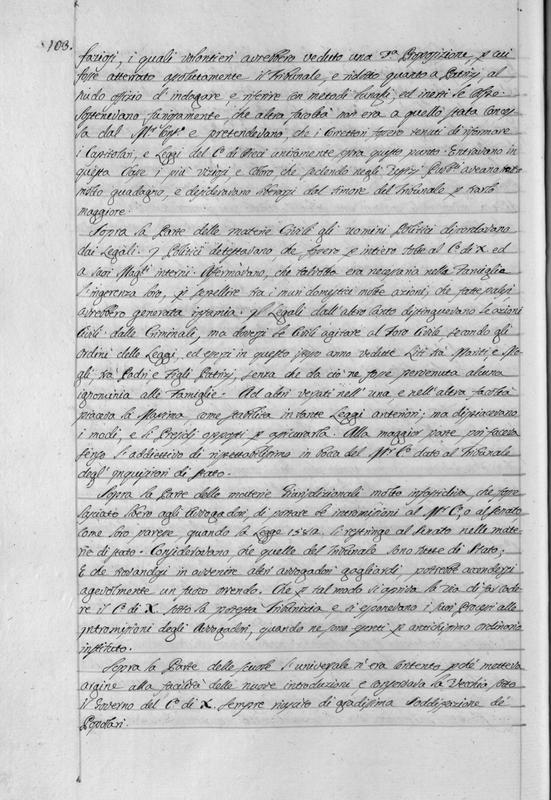 103.
faziosi, i quali volontieri avrebbero veduto una Proposizione, p cui
fosse atterrato assolutamente il Tribunale, e ridotto quanto a Patrizj, al
nudo offizio d'indagare e riferire con metodi lunghi, ed inerti le offese.
Sostenevano, che altra facoltà non era a quello stata conces
sa dal M.r Cons.o e pretendevano, che i Correttori fossero tenuti di riformare
i Capitolari, e Leggi del C.o di Dieci unitamente sopra questo punto. Entravano in
questa Classe i più viziosi e coloro che sedendo negli Uffizj Pub.ci aveano
molto guadagno, e desideravano liberarsi dal timore del Tribunale p farlo
maggiore.
Sopra la Parte delle materie Civili gli uomini Politici discordavano
dai Legali. I Politici detestavano, che fossero p intiero tolte al C.o di X. ed
a suoi Mag.ti interni. Affermavano, che talvolta era necessaria nelle Famiglie
l'ingerenza loro, p sepellire tra i muri domestici molte azioni, che fatte palesi
avrebbero generata infamia. I Legali dall'altro canto distinguevano le azioni
Civili dalle Criminali, ma doversi le Civili agitare al Foro Civile, secondo gli
ordini delle Leggi, ed essersi in questo stesso anno vedute Liti trà Mariti, e Mo-
gli, trà Padri, e Figli Patrizj, senza che da ciò ne fosse pervenuta alcuna
ignominia alle Famiglie. Ad altri versati nell'una, e nell'altra facoltà
piaceva la Massima, come stabilita in tante Leggi anteriori; ma dispiacevano
i modi, e li Presidj opposti p assicurarla. Alla maggior parte poi faceva
senso l'addiettivo di rispettabilissimo in bocca del M.r C.o dato al Tribunale
degl'Inquisitori di Stato.
Sopra la Parte delle materie Giurisdizionali molto infastidiva, che fosse
lasciato libero agli Avvogadori, di portare le intromissioni al M.r C.o, o al Senato
come loro paresse, quando la Legge 1582. li restringe al Senato nelle mate-
rie di Stato. Consideravano, che quelle del Tribunale sono tutte di Stato;
E che trovandosi in avvenire altri Avvogadori gagliardi, potrebbe accendersi
agevolmente un fuoco orrendo. Che p tal modo si apriva la via di far cade-
re il C.o di X. sotto la potestà Tribunizia, e si esponevano i suoi Processi alle
intromissioni degli Avvogadori, quando ne sono esenti p antichissimo ordinario
instituto.
Sopra la Parte delle Scuole l'universale n'era contento poiché metteva
argine alla facilità delle nuove introduzioni, e la Vecchia sotto
il Governo del C.o di X. sempre riuscito di gradissima soddisfazione de'
Popolari.